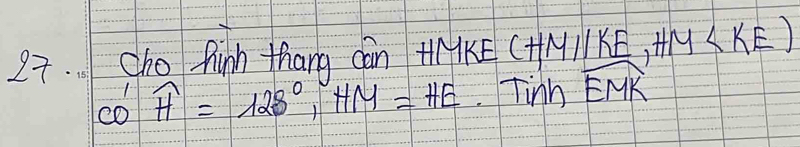 27. Cho hình thang cân HMKE (HM // KE, HM < KE)
có Ĥ = 128°, HM = HE. Tính \widehat{EMK}